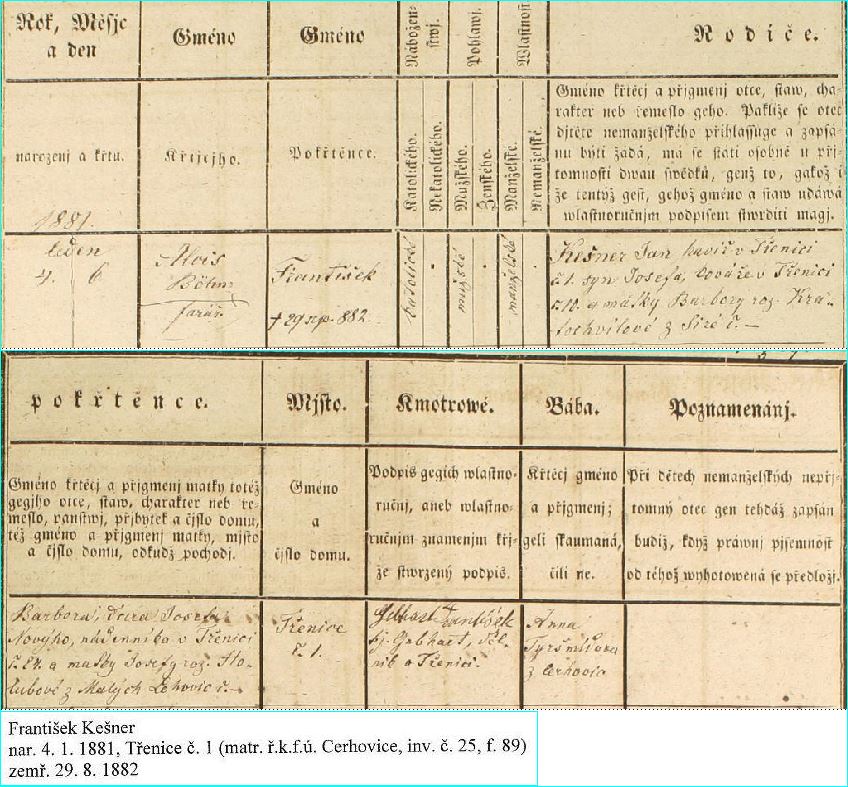 Rok, Měsjc
a den
Gméno
Gméno
Nábožen-
stwj.
Pohlawj.
Wlastnost
Rodiče.
narozenj a křtu.
Křtjcjho.
Pokřtěnce.
Katolického.
Nekatolického.
Mužského.
Ženského.
Manželské.
Nemanželské.
Gméno křtěcj a přjgmenj otce, staw, cha-
rakter neb řemeslo geho. Pakliže se otec
djtěte nemanželského přihlassuge a zapsá-
nu býti žádá, má se státi osobně u přj-
tomnosti dwau swědků, genž to, gakož i
že tentýž gest, gehož gméno a staw udáwá
wlastnoručnjm podpisem stwrditi magj.
1881.
leden
4. 6
Alois
Böhm
farář.
František
† 29 srp. 882.
katolické
mužské
manželské
Kešner Jan, kovář v Třenici
č. 1. syn Josefa, kováře v Třenici
č. 10. a matky Barbory roz. Kra-
tochvilové z Siré č. —
pokřtěnce.
Mjsto.
Kmotrowé.
Bába.
Poznamenánj.
Gméno křtěcj a přjgmenj matky totéž
gegjho otce, staw, charakter neb ře-
meslo, panstwj, přjbytek a čjslo domu,
též gméno a přjgmenj matky, mjsto
a čjslo domu, odkudž pocházj.
Gméno
a
čjslo domu.
Podpis gegich wlastno-
ručnj, aneb wlastno-
ručnjm znamenjm křj-
že stwrzený podpis.
Křtěcj gméno
a přjgmenj;
geli skaumaná,
čili ne.
Při dětech nemanželských nepřj-
tomný otec gen tehdáž zapsán
budiž, když práwnj pjsemnost
od téhož wyhotowená se předložj.
Barbora, dcera Josefa
Nového, nádenníka v Třenici
č. 24. a matky Josefy roz. Ho-
lubové z Malých Lehovic č. —
Třenice
č. 1.
Gebhart František
Gebhart,
v Třenici
Anna
z Cerhovic
František Kešner
nar. 4. 1. 1881, Třenice č. 1 (matr. ř.k.f.ú. Cerhovice, inv. č. 25, f. 89)
zemř. 29. 8. 1882